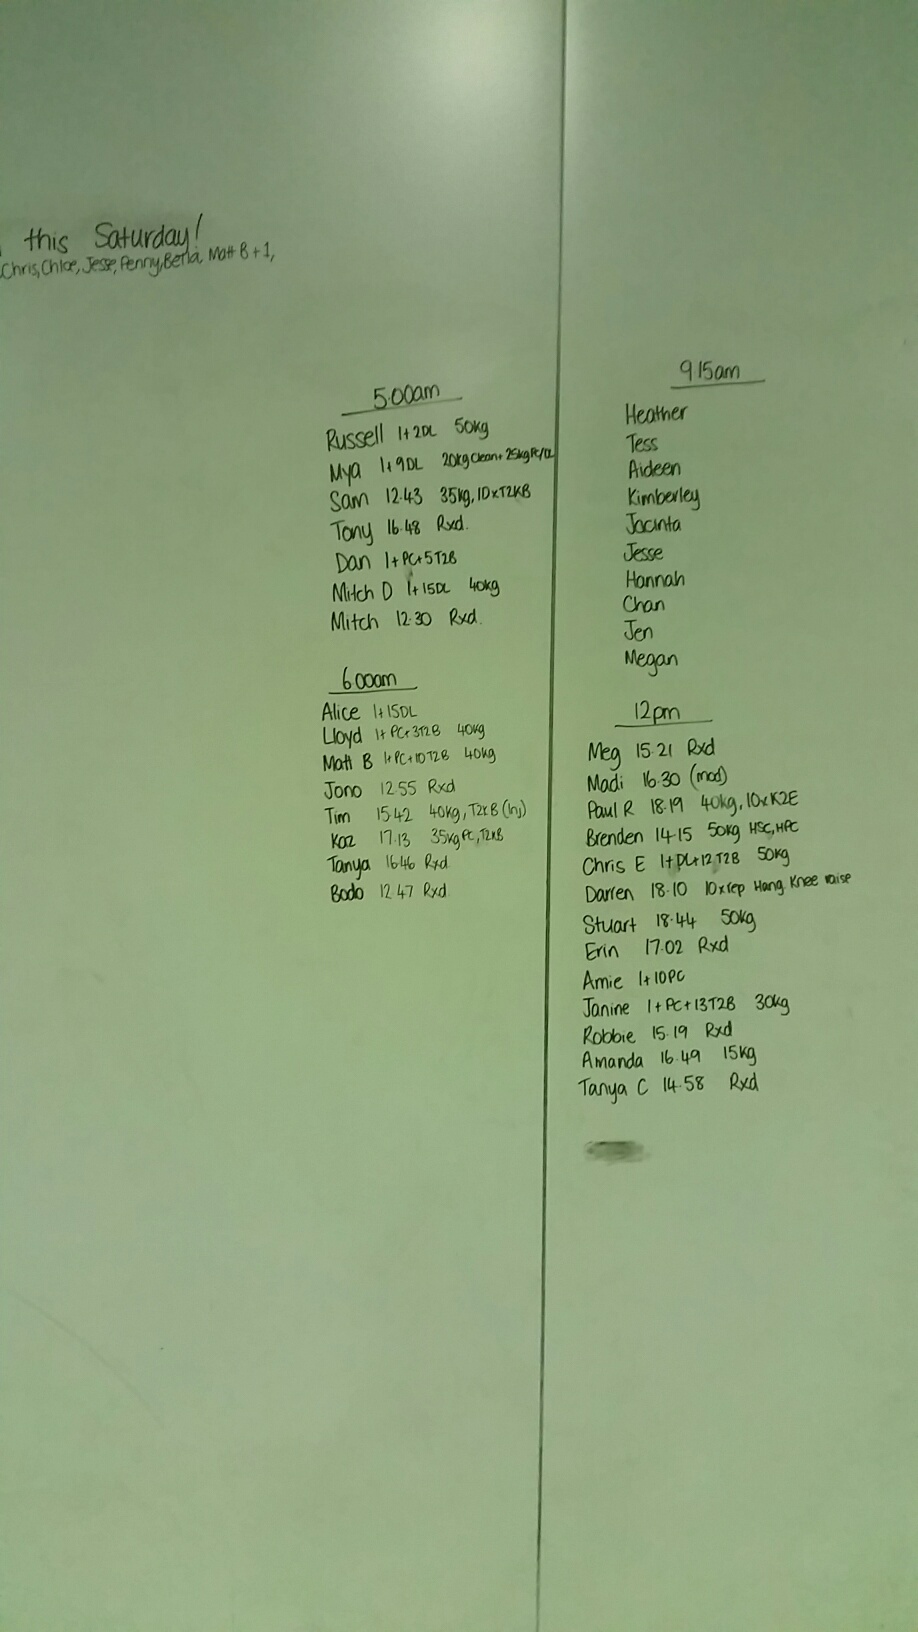 this Saturday!
Chris, Chloe, Jesse, Penny, Matt B + 1,
5:00am
Russell 1+2DL 50kg
Mya 1+9DL 20kg Clean + 25kg PC/DL
Sam 12.43 35kg, 10xT2KB
Tony 16.48 Rxd.
Dan 1+PC+5T2B
Mitch D 1+15DL 40kg
Mitch 12.30 Rxd.
6:00am
Alice 1+15DL
Lloyd 1+PC+3T2B 40kg
Matt B 1+PC+10T2B 40kg
Jono 12.55 Rxd
Tim 15.42 40kg, T2KB (Inj)
Kaz 17.13 35kg PC, T2KB
Tanya 16.46 Rxd
Bodo 12.47 Rxd
9.15am
Heather
Tess
Aideen
Kimberley
Jacinta
Jesse
Hannah
Chan
Jen
Megan
12pm
Meg 15.21 Rxd
Madi 16.30 (mod)
Paul R 18.19 40kg, 10xK2E
Brenden 14.15 50kg HSC, HPC
Chris E 1+DL+12T2B 50kg
Darren 18.10 10xrep Hang Knee raise
Stuart 18.44 50kg
Erin 17.02 Rxd
Amie 1+10PC
Janine 1+PC+13T2B 30kg
Robbie 15.19 Rxd
Amanda 16.49 15kg
Tanya C 14.58 Rxd